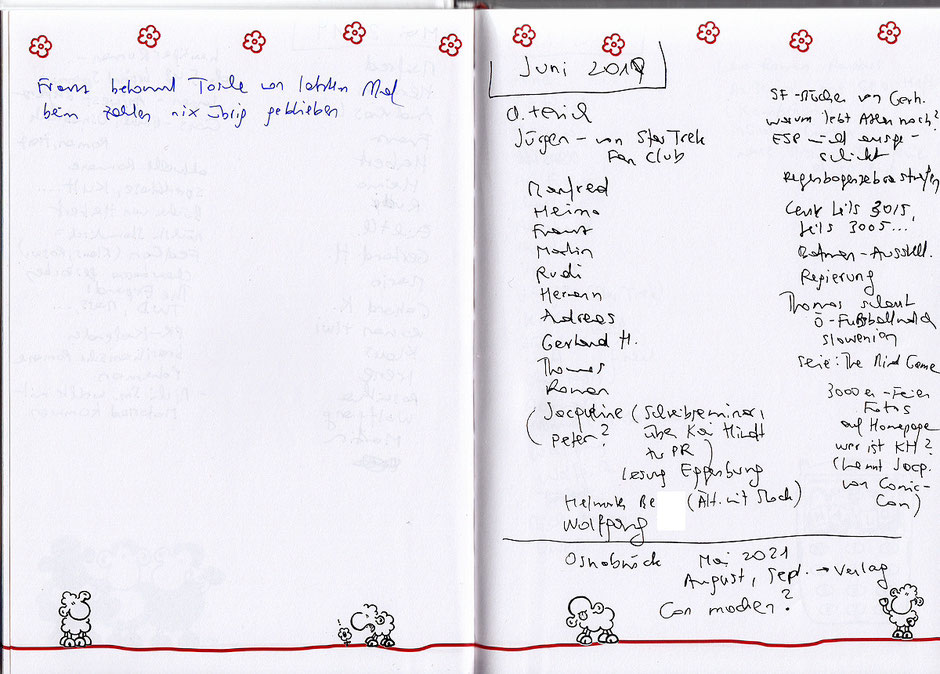 Franz bekommt Torte von letzten Mal
beim zahlen nix übrig geblieben
Juni 2019
Jürgen - von Star Trek
Fan Club
Manfred
Heimo
Franz
Martin
Rudi
Hermann
Andreas
Gerhard H.
Thomas
Roman
(Jacqueline (Schreibseminar,
Peter? über Kai Hirdt
zu PR)
Lesung Eggenburg
Helmuth Be (Ält. mit Stock)
Wolfgang
SF-Bücher von Gerh.
warum lebt Atlan noch?
ESP nicht ausge-
schickt
Regenbogenzebrastreifen
Lent Lils 3015,
Lils 3005...
Batman-Ausstell.
Regierung
Thomas schaut
Ö-Fußballmatch
Slowenien
Serie: The Mind Game
3000er-Feier
Fotos
auf Homepage
wer ist KH?
(kennt Jacq.
von Comic-
Con)
Osnabrück Mai 2021
August, Sept. → Verlag
Con machen?